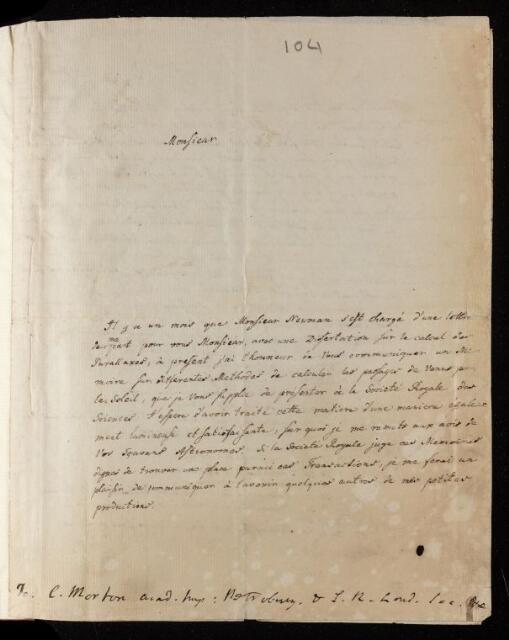 104
Monsieur
Il y a un mois que Monsieur Neuman s'est chargé d'une lettre
de ma part pour vous Monsieur, avec une Dissertation sur le calcul des
Parallaxes, à présent j'ai l'honneur de Vous communiquer un Mé-
moire sur differentes Methodes de calculer les passages de Venus par
le Soleil, que je Vous supplie de presenter à la Societé Royale des
Sciences. J'espere d'avoir traité cette matiere d'une maniere égale-
ment lumineuse et satisfaisante, sur quoi je me remets aux avis de
Vos savans Astronomes. Si la Societé Royale juge ces Memoires
dignes de trouver un place parmi ces Transactions, je me ferai un
plaisir de communiquer à l'avenir quelques autres de mes petites
productions.
C. Morton acad. Imp: Petrobury. & S. R. Lond. Soc.